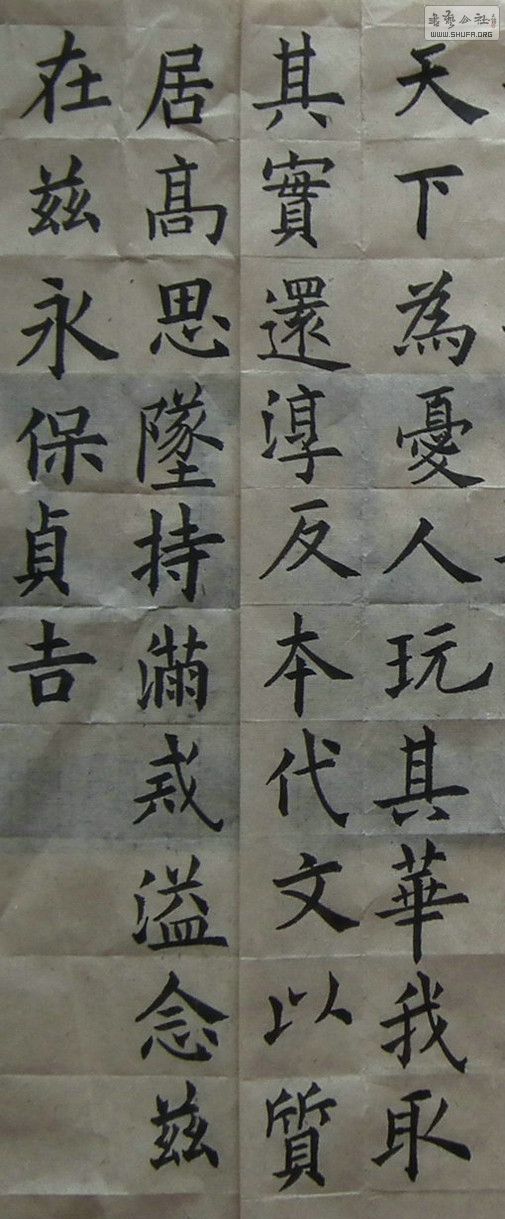 天下為憂人玩其華我取
其實還淳反本代文以質
居高思墜持滿戒溢念茲
在茲永保貞吉
書藝公社
WWW.SHUFA.ORG